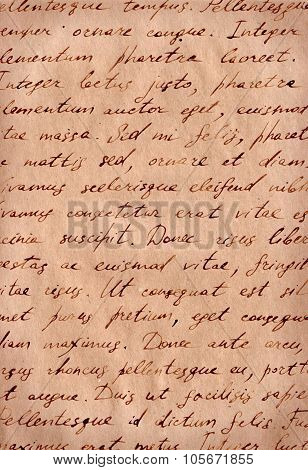 ellentesque tempus. Pellentesque
emper ornare congue. Integer
lementum pharetra laoreet.
Integer lectus justo, pharetra
lementum auctor eget, euismod
tae massa. Sed mi felis, pharet
c mattis sed, ornare et diam
ivamus scelerisque eleifend nibh
ivamus consectetur erat vitae es
cinia suscipit. Donec risus liber
estas ac euismod vitae, fringill
itae risus. Ut consequat est sit
met purus pretium, eget consequa
diam maximus. Donec ante arcu,
rsus rhoncus pellentesque eu, portt
t augue. Duis ut facilisis sapie
Pellentesque id dictum felis. Fu
maximus erat metus. Integer luct
105671855